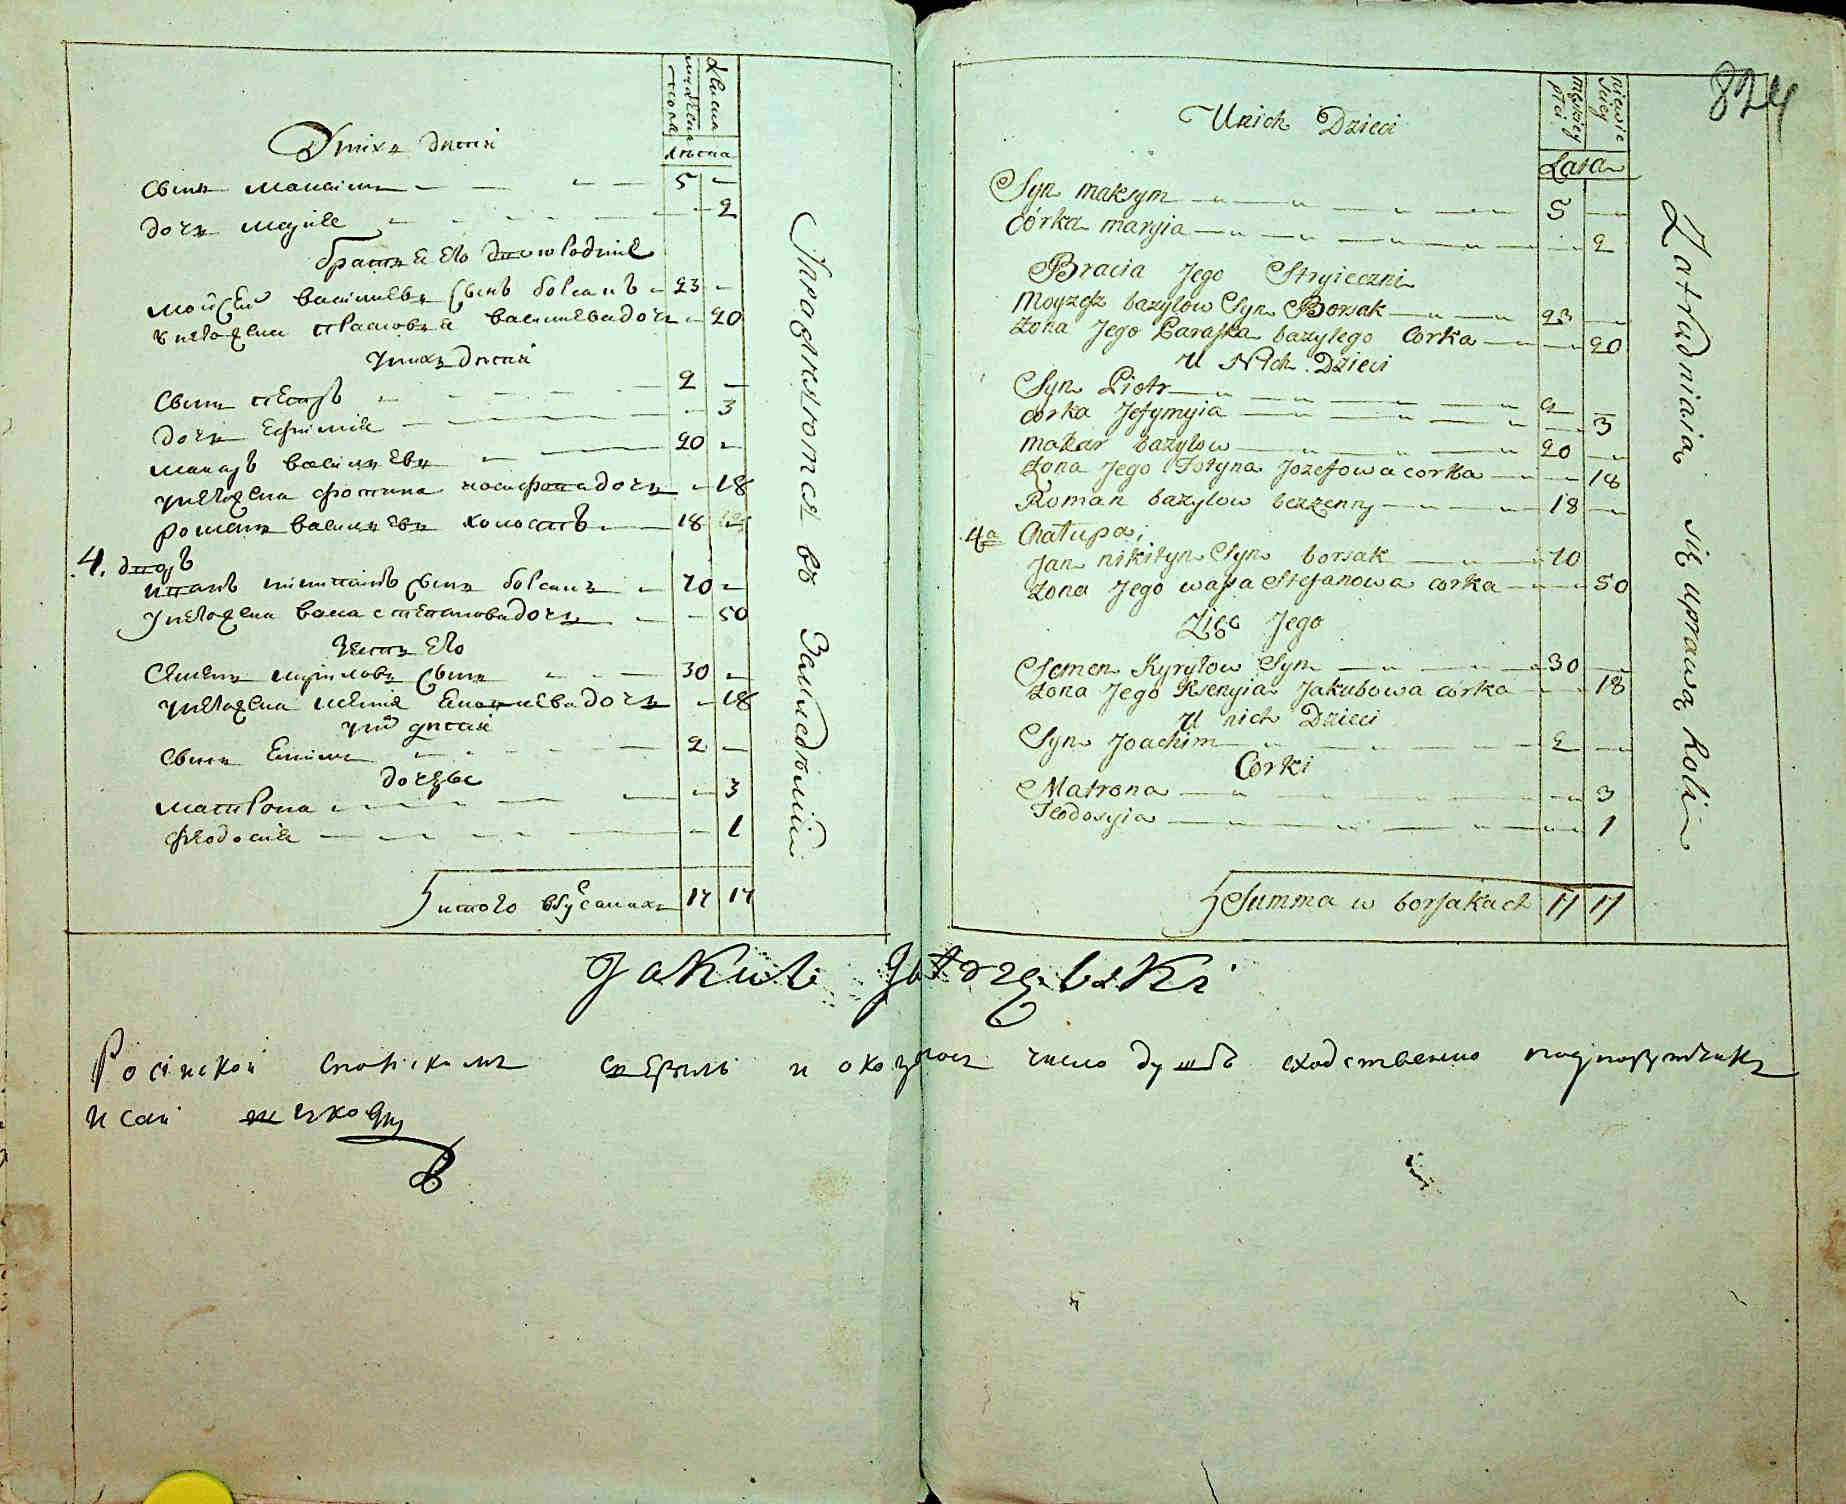 У нихъ дѣти
Сынъ Максимъ 5
Дочь Марія 2
Братья его двоюродные
Мойсей Васильевъ сынъ Борсакъ 23
У него жена Васильева дочь 20
У нихъ дѣти
Сынъ Петръ 2
Дочь Ефимія 3
Макаръ Васильевъ 20
У него жена Фотина Іосифова дочь 18
Романъ Васильевъ холостъ 18
4. дворъ
Иванъ Никитинъ сынъ Борсакъ 70
У него жена Васа Степанова дочь 50
Зять его
Семенъ Кириловъ сынъ 30
У него жена Ксенія дочь 18
У них дѣти
Сынъ Екимъ 2
Дочери
Матрона 3
Феодосія 1
Итого в Бусаках 17 17
Упражняются въ Земледѣліи
824
męszkiey płci
niewie ściey
Lata
U nich Dzieci
Syn maksym 5
Córka maryia 2
Bracia Jego Stryieczni
Moyzesz bazylow Syn Borsak 23
żona Jego Paraska bazylego Corka 20
U Nich Dzieci
Syn Piotr 2
corka Jefymyia 3
makar bazylow 20
żona Jego Fotyna Jozefowa corka 18
Roman bazylow bezżenny 18
4a Chałupa
Jan nikityn Syn borsak 70
żona Jego wassa Stefanowa corka 50
Zięć Jego
Semen Kyryłow Syn 30
żona Jego Ksenyia Jakubowa córka 18
U nich Dzieci
Syn Joachim 2
Corki
Matrona 3
Teodosyia 1
Summa w borsakach 17 17
Zatrudniaią się uprawą Roli
Jakub Jastrzębski
Російской съ полскимъ сверялъ и оказалось число душъ сходственно подпорутчикъ
Исай